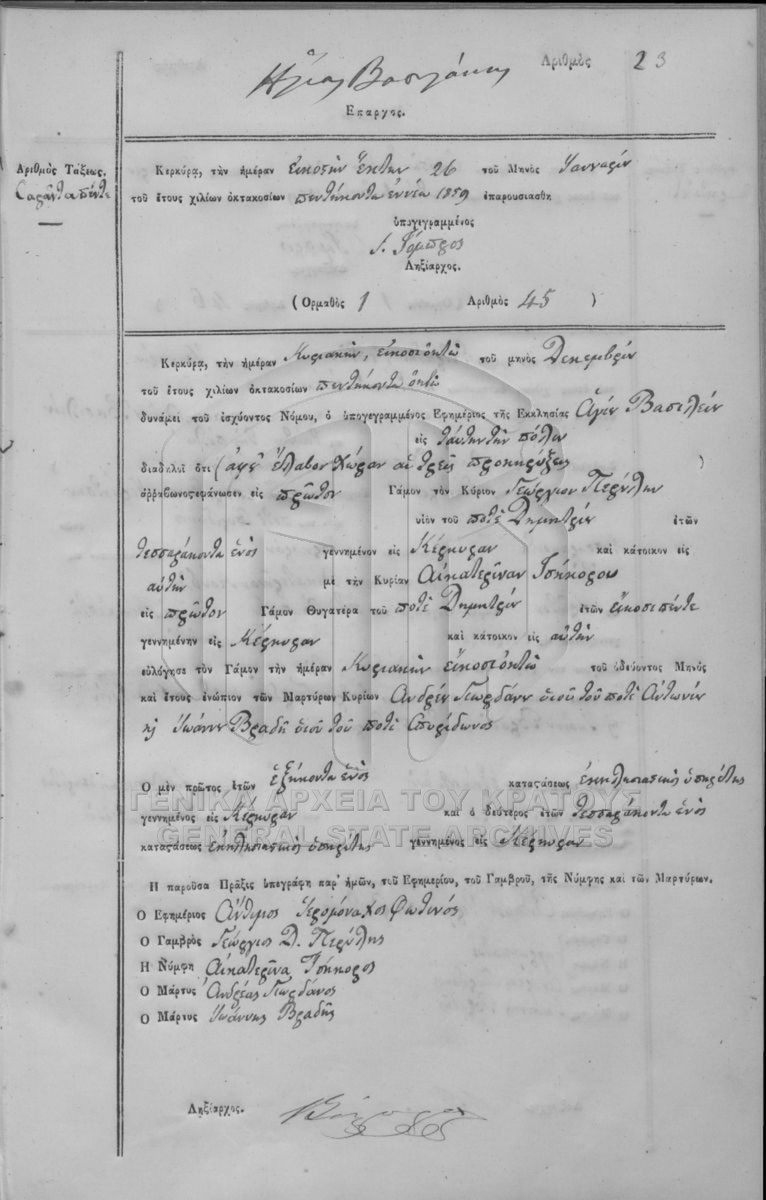 Αριθμὸς 23
Ηλίας Βασιλάκης
Επαρχος.
Αριθμὸς Τάξεως.
Σαράντα πέντε
Κερκύρᾳ, τὴν ἡμέραν εἰκοστὴν ἕκτην 26 τοῦ Μηνὸς Ἰαννουαρίου
τοῦ ἔτους χιλίων ὀκτακοσίων πεντήκοντα ἐννέα 1859 ἐπαρουσιασθη
ὑπογεγραμμένος
Ληξίαρχος.
( Ορμαθὸς 1 Αριθμὸς 45 )
Κερκύρᾳ, τὴν ἡμέραν Κυριακὴν, εἰκοσιοκτὼ τοῦ μηνὸς Δεκεμβρίου
τοῦ ἔτους χιλίων ὀκτακοσίων πεντήκοντα ὀκτὼ
δυνάμει τοῦ ἰσχύοντος Νόμου, ὁ ὑπογεγραμμένος Εφημέριος τῆς Εκκλησίας Ἁγίου Βασιλείου
εἰς ταύτην τὴν πόλιν
διαδηλοῖ ὅτι ( ἀφ' οὗ ἔλαβον χώραν αἱ τρεῖς προκηρύξεις )
ἀρραβωνοςεφάνωσεν εἰς πρῶτον Γάμον τὸν Κύριον Γεώργιον Περύλην
υἱὸν τοῦ ποτὲ Δημητρίου ἐτῶν
τεσσαράκοντα ἑνὸς γεννημένον εἰς Κέρκυραν καὶ κάτοικον εἰς
αὐτὴν μὲ τὴν Κυρίαν Αἰκατερῖναν Τσήκορου
εἰς πρῶτον Γάμον Θυγατέρα τοῦ ποτὲ Δημητρίου ἐτῶν εἴκοσι πέντε
γεννημένην εἰς Κέρκυραν καὶ κάτοικον εἰς αὐτὴν
εὐλόγησε τὸν Γάμον τὴν ἡμέραν Κυριακὴν εἰκοσιοκτὼ τοῦ ὁδεύοντος Μηνὸς
καὶ ἔτους ἐνώπιον τῶν Μαρτύρων Κυρίων Ἀνδρέου Γιορδάνου υἱοῦ τοῦ ποτὲ Ἀντωνίου
κ Ἰωάννου Βραδῆ υἱοῦ τοῦ ποτὲ Σπυρίδωνος
Ο μὲν πρῶτος ἐτῶν ἑξήκοντα ἑνὸς κατασάσεως ἐκκλησιαστικὸς ὑπηρέτης
γεννημένος εἰς Κέρκυραν καὶ ὁ δεύτερος ἐτῶν τεσσαράκοντα ἑνὸς
κατασάσεως ἐκκλησιαστικὸς ὑπηρέτης γεννημένος εἰς Κέρκυραν
ΓΕΝΙΚΑ ΑΡΧΕΙΑ ΤΟΥ ΚΡΑΤΟΥΣ
GENERAL STATE ARCHIVES
Η παροῦσα Πρᾶξις ὑπεγράφη παρ' ἡμῶν, τοῦ Εφημερίου, τοῦ Γαμβροῦ, τῆς Νύμφης καὶ τῶν Μαρτύρων.
Ο Εφημέριος Ἄνθιμος Ἱερομόναχος Φωτινός
Ο Γαμβρὸς Γεώργιος Δ. Περύλης
Η Νύμφη Αἰκατερῖνα Τσήκορος
Ο Μάρτυς Ἀνδρέας Γιορδάνος
Ο Μάρτυς Ἰωάννης Βραδῆς
Ληξίαρχος.